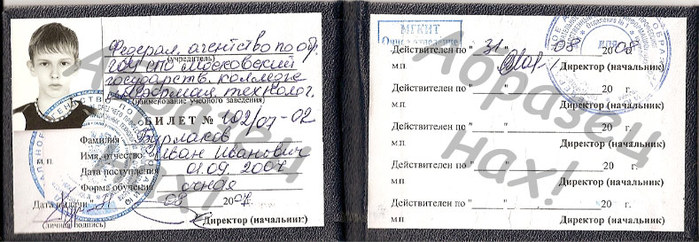 Федерал. агентство по обр.
(учредитель)
ГОУ СПО Московский
государств. колледж
технолог.
(наименование учебного заведения)
БИЛЕТ № 102/07-02
Фамилия Бурлаков
Имя, отчество Иван Иванович
Дата поступления 01.09.2007
Форма обучения очная
Дата выдачи " 31 " 08 2007
(личная подпись)
Директор (начальник:)
м.п.
Образец
нах!
МГКИТ
Очное отделение
Действителен по " 31 " 08 2008
мп Директор (начальник)
Действителен по " " 20 г.
мп Директор (начальник)
Действителен по " " 20 г.
мп Директор (начальник)
Действителен по " " 20 г.
мп Директор (начальник)
Действителен по " " 20 г.
мп Директор (начальник)
Образец
нах!